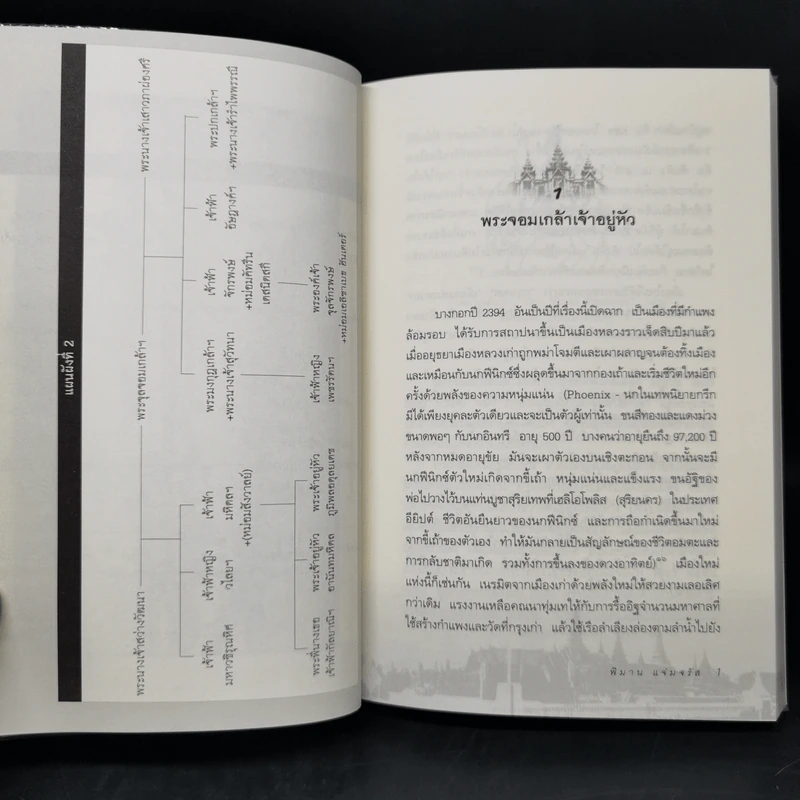 แผนผังที่ 2
พระนางเจ้าสว่างวัฒนา
พระจุลจอมเกล้าฯ
พระนางเจ้าเสาวภาผ่องศรี
เจ้าฟ้า
มหาวชิรุณหิศ
เจ้าฟ้าหญิง
วไลยฯ
เจ้าฟ้า
มหิดลฯ
+(หม่อมสังวาลย์)
พระมงกุฎเกล้าฯ
+พระนางเจ้าสุวัทนา
เจ้าฟ้า
จักรพงษ์
+หม่อมคัทริน
เดสนิตสกี
เจ้าฟ้า
อัษฎางค์ฯ
พระปกเกล้าฯ
+พระนางเจ้ารำไพพรรณี
พระพี่นางเธอ
เจ้าฟ้ากัลยาณิฯ
พระเจ้าอยู่หัว
อานันทมหิดล
พระเจ้าอยู่หัว
ภูมิพลอดุลยเดช
เจ้าฟ้าหญิง
เพชรรัตนา
พระองค์เจ้า
จุลจักรพงษ์
+หม่อมเอลิซาเบธ ฮันเตอร์
1
พระจอมเกล้าเจ้าอยู่หัว
บางกอกปี 2394 อันเป็นปีที่เรื่องนี้เปิดฉาก เป็นเมืองที่มีกำแพง
ล้อมรอบ ได้รับการสถาปนาขึ้นเป็นเมืองหลวงราวเจ็ดสิบปีมาแล้ว
เมื่ออยุธยาเมืองหลวงเก่าถูกพม่าโจมตีและเผาผลาญจนต้องทิ้งเมือง
และเหมือนกับนกฟีนิกซ์ซึ่งผลุดขึ้นมาจากกองเถ้าและเริ่มชีวิตใหม่อีก
ครั้งด้วยพลังของความหนุ่มแน่น (Phoenix - นกในเทพนิยายกรีก
มีได้เพียงยุคละตัวเดียวและจะเป็นตัวผู้เท่านั้น ขนสีทองและแดงม่วง
ขนาดพอๆ กับนกอินทรี อายุ 500 ปี บางคนว่าอายุยืนถึง 97,200 ปี
หลังจากหมดอายุขัย มันจะเผาตัวเองบนเชิงตะกอน จากนั้นจะมี
นกฟีนิกซ์ตัวใหม่เกิดจากขี้เถ้า หนุ่มแน่นและแข็งแรง ขนอัฐิของ
พ่อไปวางไว้บนแท่นบูชาสุริยเทพที่เฮลิโอโพลิส (สุริยนคร) ในประเทศ
อียิปต์ ชีวิตอันยืนยาวของนกฟีนิกซ์ และการถือกำเนิดขึ้นมาใหม่
จากขี้เถ้าของตัวเอง ทำให้มันกลายเป็นสัญลักษณ์ของชีวิตอมตะและ
การกลับชาติมาเกิด รวมทั้งการขึ้นลงของดวงอาทิตย์) เมืองใหม่
แห่งนี้ก็เช่นกัน เนรมิตจากเมืองเก่าด้วยพลังใหม่ให้สวยงามเลอเลิศ
กว่าเดิม แรงงานเหลือคณนาทุ่มเทให้กับการรื้ออิฐจำนวนมหาศาลที่
ใช้สร้างกำแพงและวัดที่กรุงเก่า แล้วใช้เรือลำเลียงล่องตามลำน้ำไปยัง
พิมาน แจ่มจรัส 1